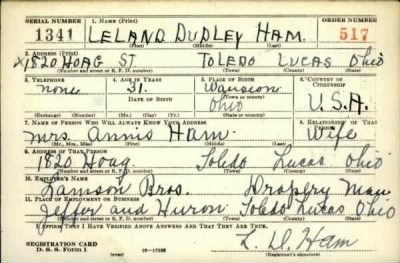 SERIAL NUMBER 1. NAME (Print) ORDER NUMBER
1341 LELAND DUDLEY HAM. 517
(First) (Middle) (Last)
2. ADDRESS (Print)
1820 HOAG ST. TOLEDO LUCAS Ohio
(Number and street or R. F. D. number) (Town) (County) (State)
3. TELEPHONE 4. AGE IN YEARS 5. PLACE OF BIRTH 6. COUNTRY OF CITIZENSHIP
none 31. Wauseon
DATE OF BIRTH (Town or county)
Ohio U.S.A.
(Exchange) (Number) (Mo.) (Day) (Yr.) (State or country)
7. NAME OF PERSON WHO WILL ALWAYS KNOW YOUR ADDRESS 8. RELATIONSHIP OF THAT PERSON
Mrs. Annis Ham Wife
(Mr., Mrs., Miss) (First) (Middle) (Last)
9. ADDRESS OF THAT PERSON
1820 Hoag. Toledo Lucas Ohio
(Number and street or R. F. D. number) (Town) (County) (State)
10. EMPLOYER'S NAME
Lamson Bros. Drapery Man
11. PLACE OF EMPLOYMENT OR BUSINESS
Jeffer and Huron Toledo Lucas Ohio
(Number and street or R. F. D. number) (Town) (County) (State)
I AFFIRM THAT I HAVE VERIFIED ABOVE ANSWERS AND THAT THEY ARE TRUE.
L. D. Ham
REGISTRATION CARD
D. S. S. Form 1 (Registrant's signature)